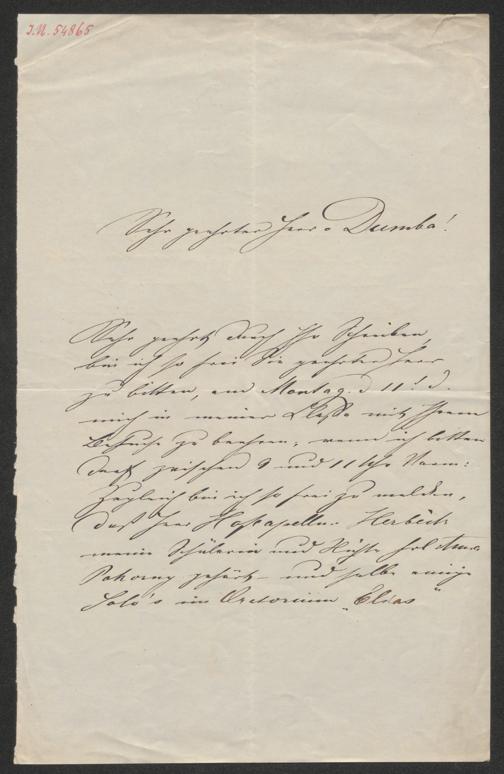 J.N. 54865
Sehr geehrter Herr v Dumba!
Sehr geehrt durch Ihr Schreiben,
bin ich so frei Sie geehrter Herr
zu bitten, am Montag d 11t. d.
mich in meiner Classe mit Ihrem
Besuche zu beehren, wenn ich bitten
darf zwischen 9 und 11 Uhr Vorm:
Zugleich bin ich so frei zu melden,
daß Herr Hofkapellm. Herbeck
meine Schülerin und Nichte Frl
Pokorny gehört und selbe einige
Solo's im Oratorium „Elias"